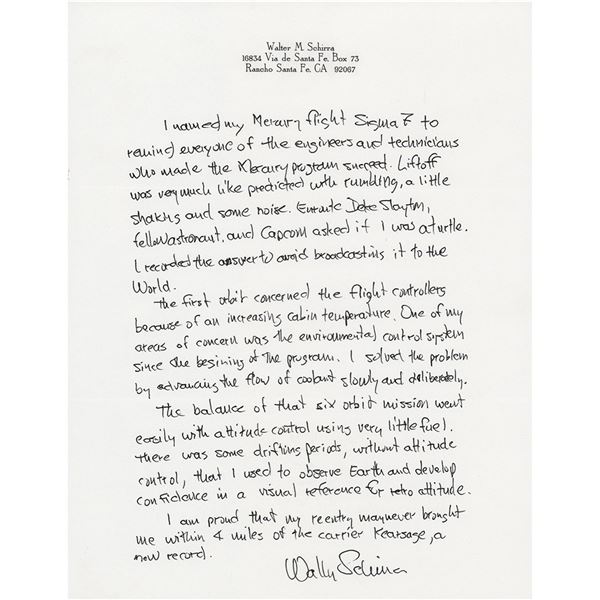 Walter M. Schirra
16834 Via de Santa Fe, Box 73
Rancho Santa Fe, CA 92067
I named my Mercury flight Sigma 7 to
remind everyone of the engineers and technicians
who made the Mercury program succeed. Liftoff
was very much like predicted with rumbling, a little
shaking and some noise. Enroute Deke Slayton,
fellow astronaut, and Capcom asked if I was a turtle.
I recorded the answer to avoid broadcasting it to the
World.
The first orbit concerned the flight controllers
because of an increasing cabin temperature. One of my
areas of concern was the environmental control system
since the begining of the program. I solved the problem
by advancing the flow of coolant slowly and deliberately.
The balance of that six orbit mission went
easily with attitude control using very little fuel.
There was some drifting periods, without attitude
control, that I used to observe Earth and develop
confidence in a visual reference for retro attitude.
I am proud that my reentry manuever brought
me within 4 miles of the carrier Kearsage, a
new record.
Wally Schirra